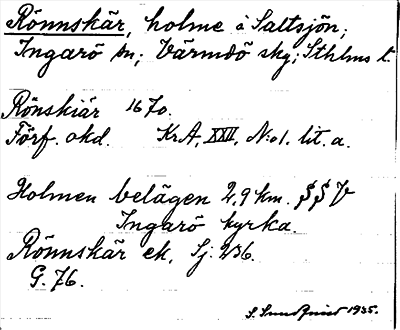 Rönnskär, holme i Saltsjön;
Ingarö sn; Värmdö skg; Sthlms l.
Rönskiär 1670.
Förf. okd. KrA, XXII, N:o1. lit. a.
Holmen belägen 2,9 km. S S V
Ingarö kyrka.
Rönnskär ek. Sj. 236.
G. 76.
S. Sundqvist 1935.